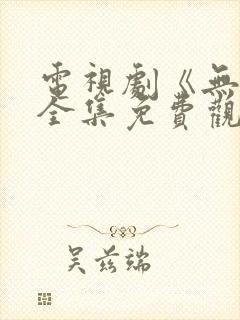 電視劇《無
全集免費觀
吴兹端